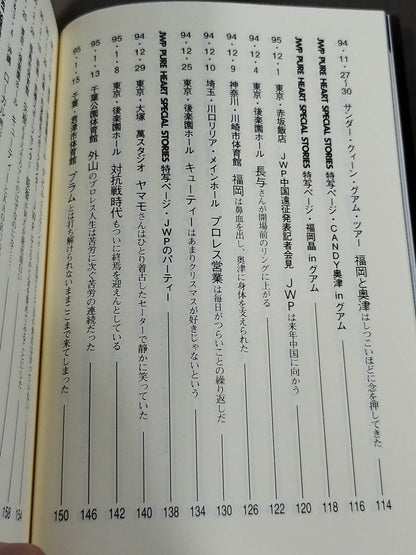 94・11・27〜30 サンダー・クィーン・グアム・ツアー 福岡と奥津はしつこいほどに念を押してきた 114
JWP PURE HEART SPECIAL STORIES 特写ページ・CANDY奥津 in グアム 116
JWP PURE HEART SPECIAL STORIES 特写ページ・福岡晶 in グアム 118
95・12・1 東京・赤坂飯店 JWP中国遠征発表記者会見 JWPは来年中国に向かう 120
94・12・4 東京・後楽園ホール 長与さんが開場前のリングに上がる 122
94・12・9 神奈川・川崎市体育館 福岡は鼻血を出し、奥津に身体を支えられた 126
94・12・10 埼玉・川口リリア・メインホール プロレス営業は毎日がつらいことの繰り返しだ 130
94・12・25 東京・後楽園ホール キューティーはあまりクリスマスが好きじゃないという 134
JWP PURE HEART SPECIAL STORIES 特写ページ・JWPのパーティ 138
94・12・29 東京・大塚 萬スタジオ ヤマモさんはひとり着古したセーターで静かに笑っていた 140
95・1・8 東京・後楽園ホール 対抗戦時代もついに終焉を迎えんとしている 142
95・1・13 千葉公園体育館 外山のプロレス人生は苦労に次ぐ苦労の連続だった 146
95・1・15 千葉・君津市体育館 プラムとは打ち解けられないままここまで来てしまった 150
154